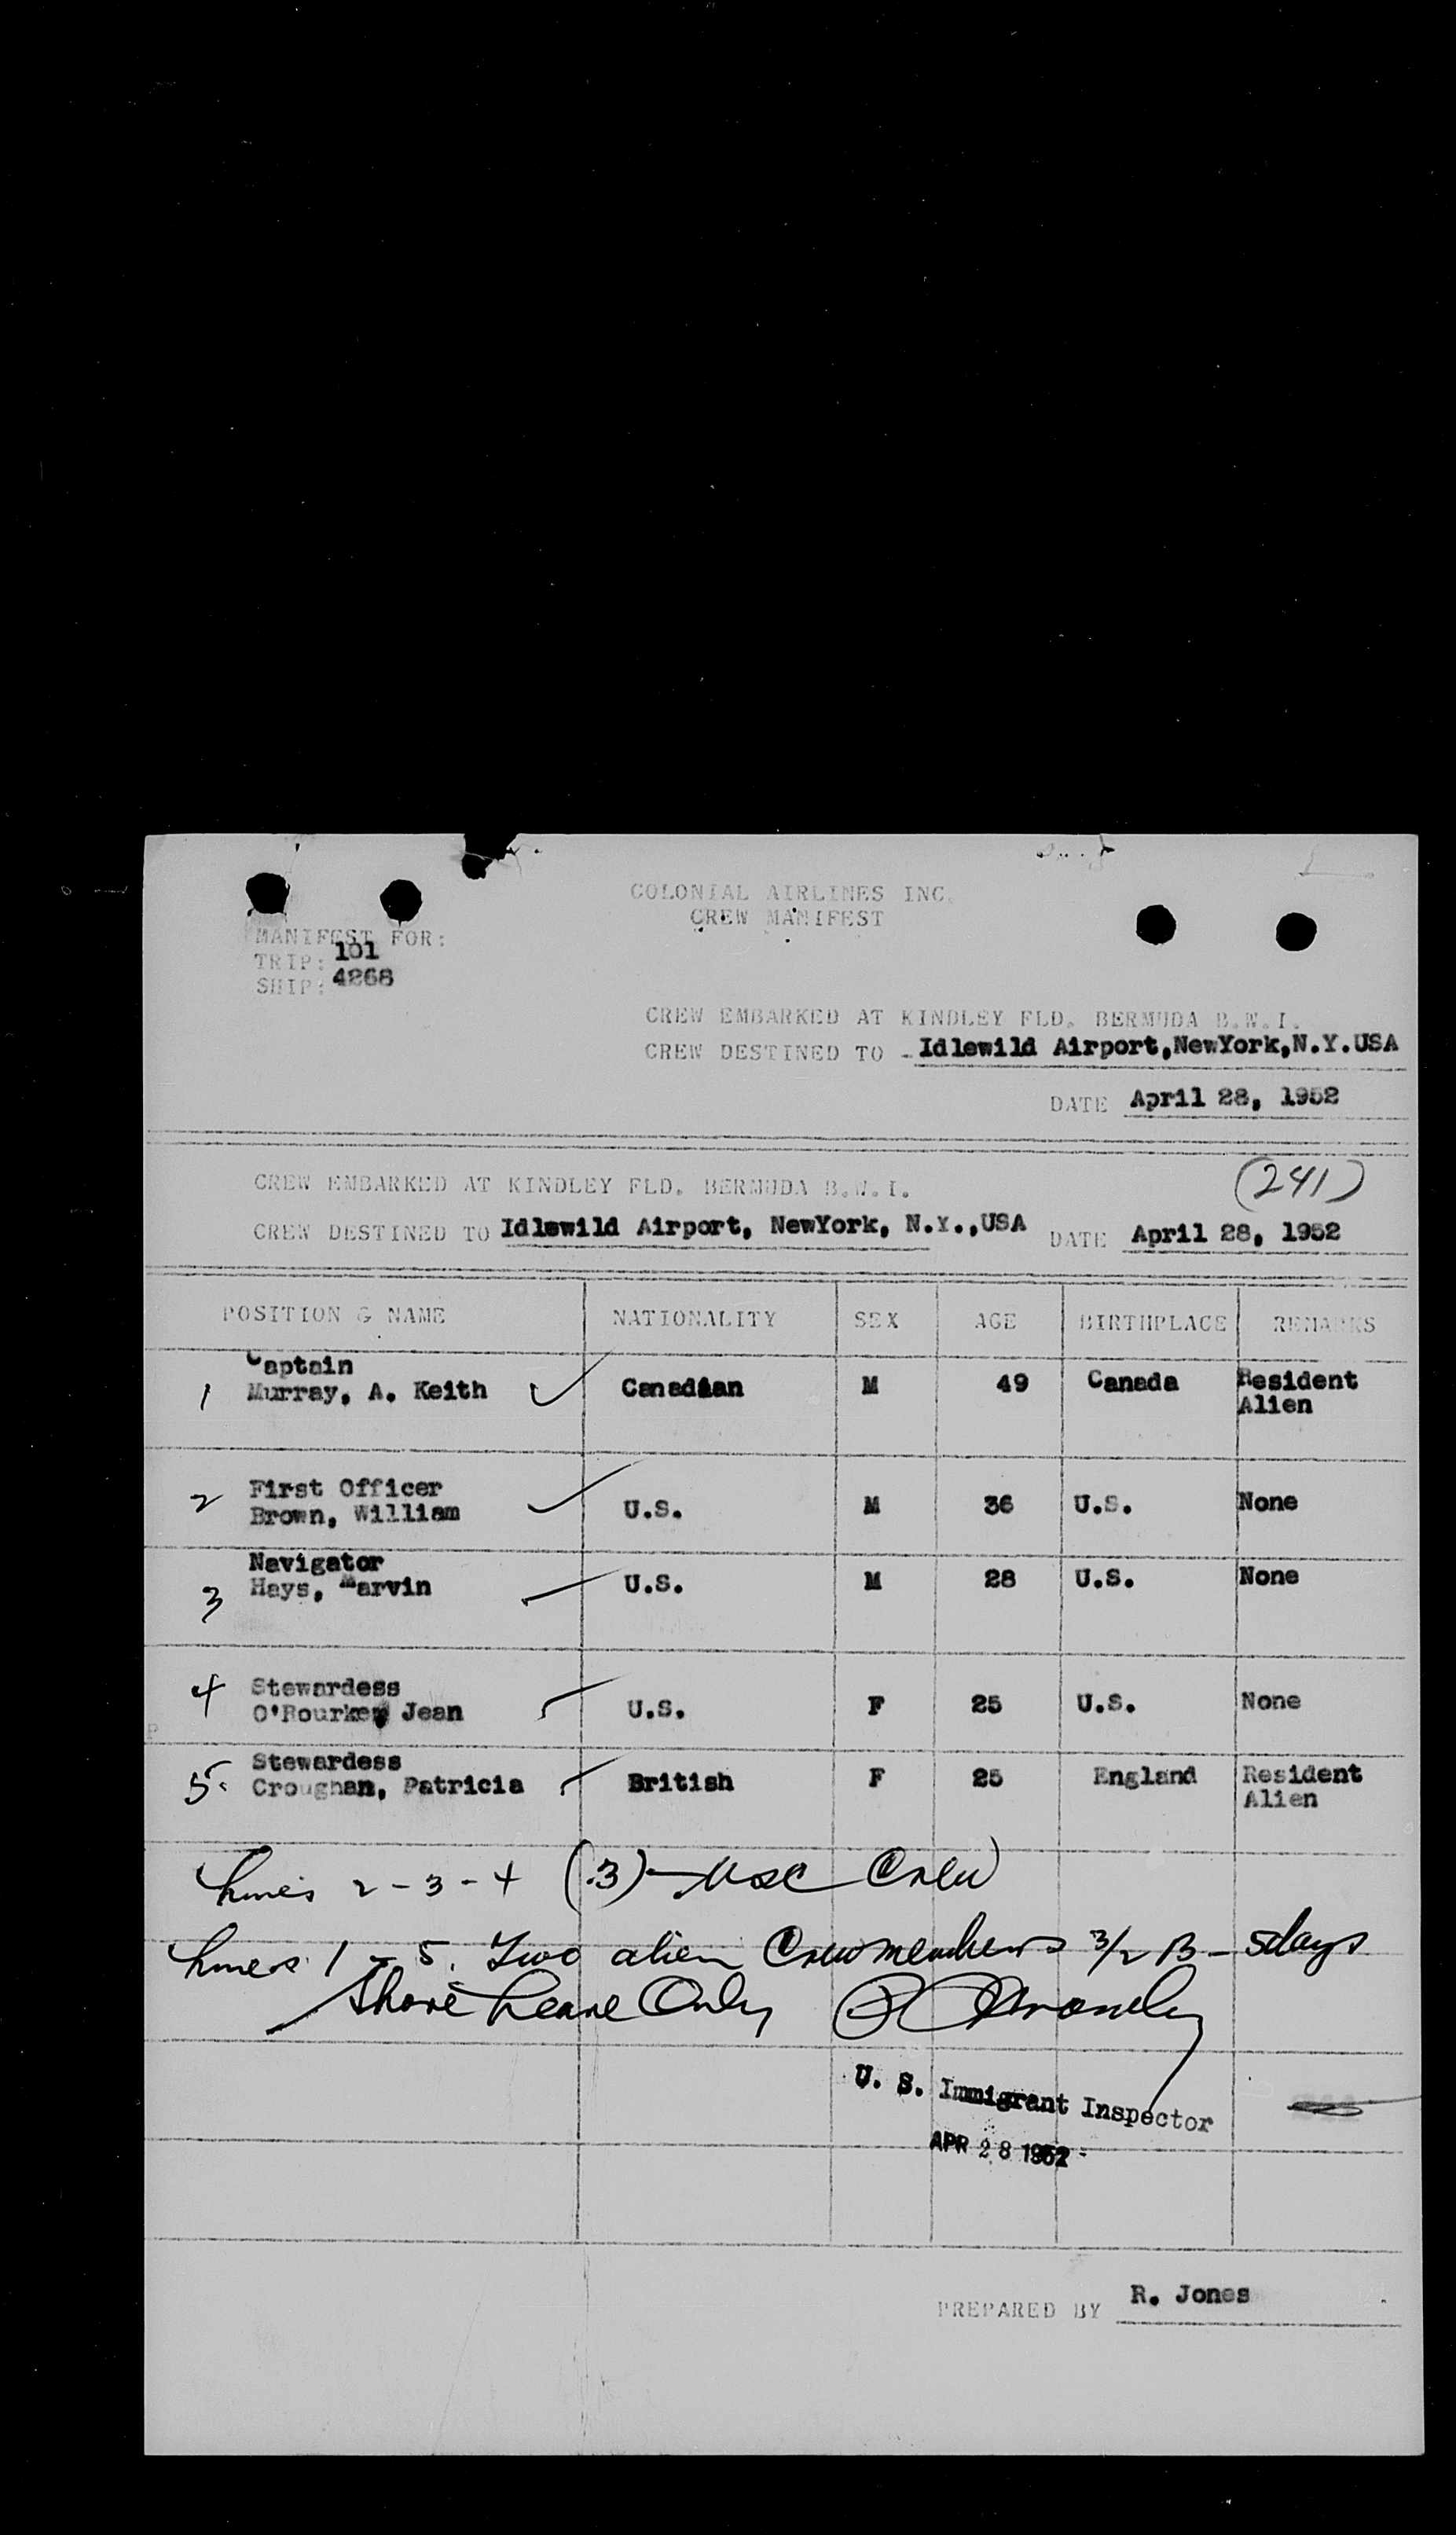 COLONIAL AIRLINES INC.
CREW MANIFEST
MANIFEST FOR:
TRIP: 101
SHIP: 4268
CREW EMBARKED AT KINDLEY FLD. BERMUDA B.W.I.
CREW DESTINED TO Idlewild Airport,NewYork,N.Y.USA
DATE April 28, 1952
(241)
CREW EMBARKED AT KINDLEY FLD. BERMUDA B.W.I.
CREW DESTINED TO Idlewild Airport, NewYork, N.Y.,USA DATE April 28, 1952
POSITION & NAME NATIONALITY SEX AGE BIRTHPLACE REMARKS
Captain
1 Murray, A. Keith Canadian M 49 Canada Resident
Alien
2 First Officer
Brown, William U.S. M 36 U.S. None
Navigator
3 Hays, Marvin U.S. M 28 U.S. None
4 Stewardess
O'Rourke, Jean U.S. F 25 U.S. None
Stewardess
5. Croughan, Patricia British F 25 England Resident
Alien
Lines 2-3-4 (3) - USC Crew
Lines 1 - 5. Two alien Crewmembers 3/2 B - 5days
Shore Leave Only
U. S. Immigrant Inspector
APR 28 1952
PREPARED BY R. Jones